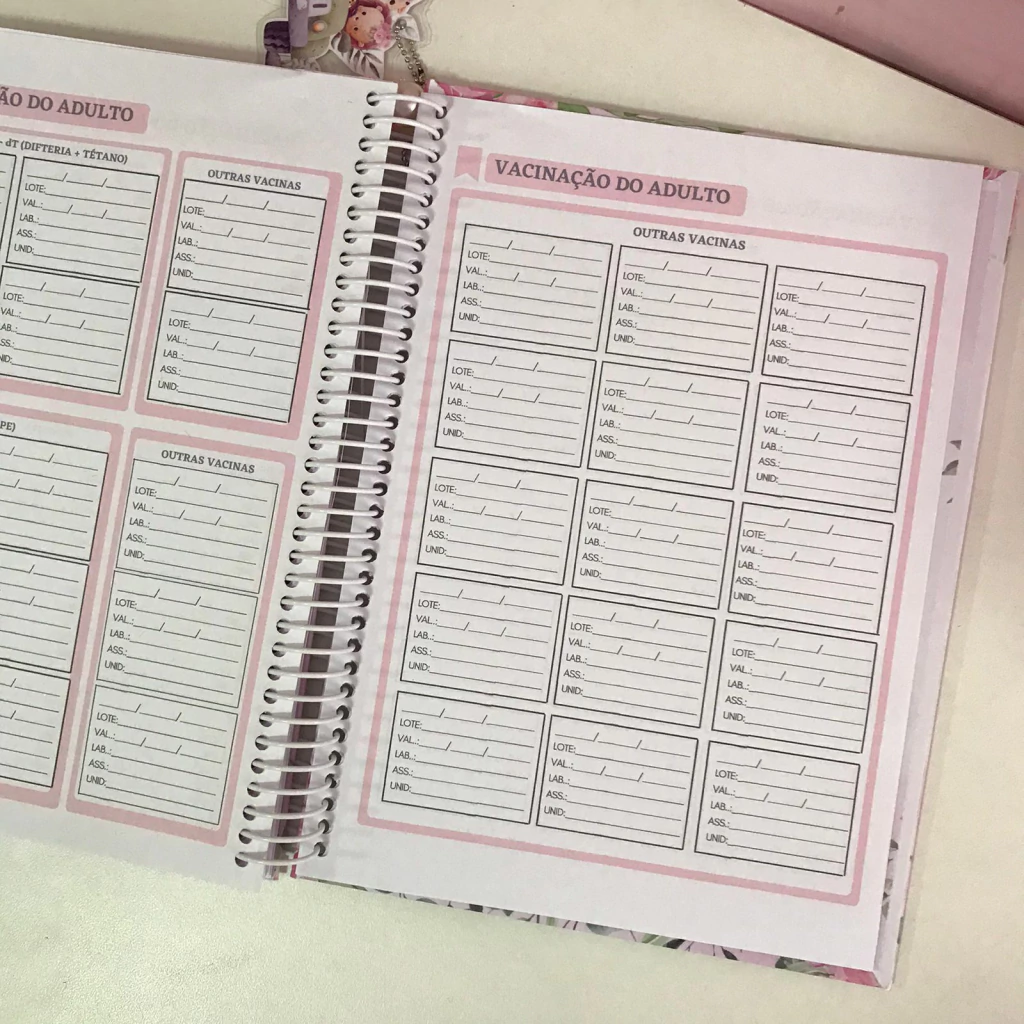 ÃO DO ADULTO
dT (DIFTERIA + TÉTANO)
LOTE:
VAL.:
LAB.:
ASS.:
UNID:
LOTE:
VAL.:
LAB.:
ASS.:
UNID:
OUTRAS VACINAS
LOTE:
VAL.:
LAB.:
ASS.:
UNID:
LOTE:
VAL.:
LAB.:
ASS.:
UNID:
PE)
OUTRAS VACINAS
LOTE:
VAL.:
LAB.:
ASS.:
UNID:
LOTE:
VAL.:
LAB.:
ASS.:
UNID:
LOTE:
VAL.:
LAB.:
ASS.:
UNID:
VACINAÇÃO DO ADULTO
OUTRAS VACINAS
LOTE:
VAL.:
LAB.:
ASS.:
UNID:
LOTE:
VAL.:
LAB.:
ASS.:
UNID:
LOTE:
VAL.:
LAB.:
ASS.:
UNID:
LOTE:
VAL.:
LAB.:
ASS.:
UNID:
LOTE:
VAL.:
LAB.:
ASS.:
UNID:
LOTE:
VAL.:
LAB.:
ASS.:
UNID:
LOTE:
VAL.:
LAB.:
ASS.:
UNID:
LOTE:
VAL.:
LAB.:
ASS.:
UNID:
LOTE:
VAL.:
LAB.:
ASS.:
UNID:
LOTE:
VAL.:
LAB.:
ASS.:
UNID:
LOTE:
VAL.:
LAB.:
ASS.:
UNID:
LOTE:
VAL.:
LAB.:
ASS.:
UNID:
LOTE:
VAL.:
LAB.:
ASS.:
UNID:
LOTE:
VAL.:
LAB.:
ASS.:
UNID:
LOTE:
VAL.:
LAB.:
ASS.:
UNID: